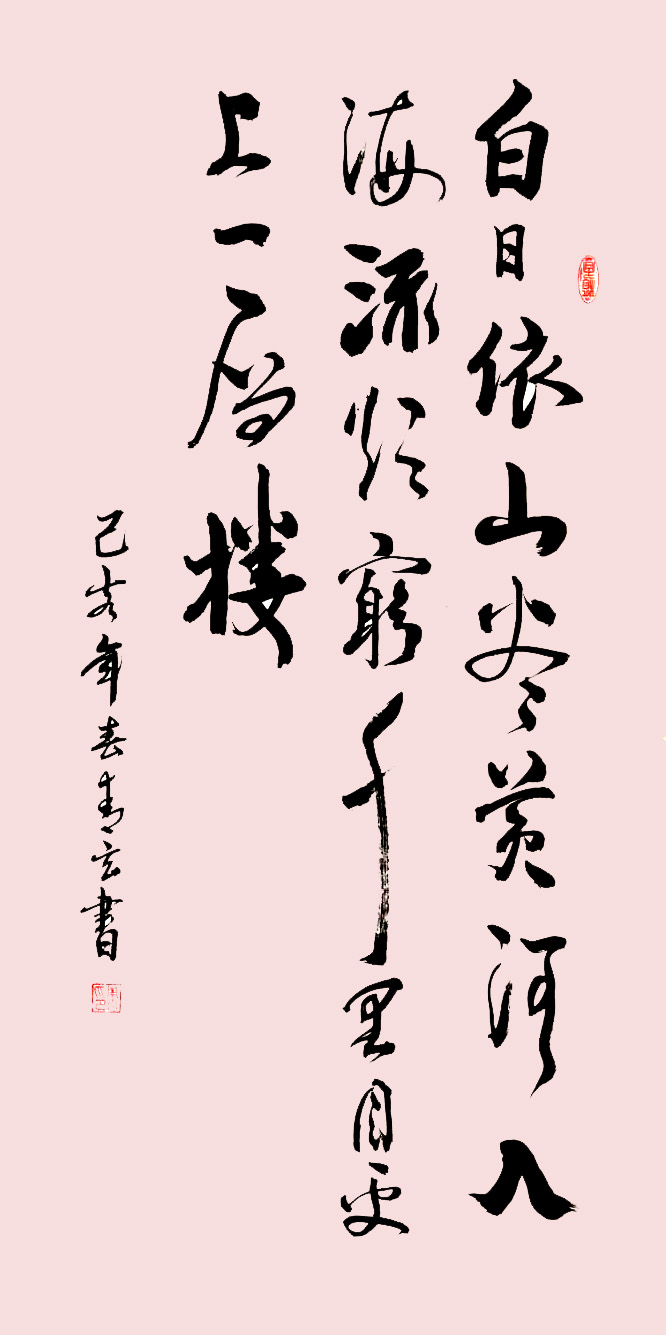 白日依山尽黄河入
海流欲穷千里目更
上一层楼
己亥年春青云書